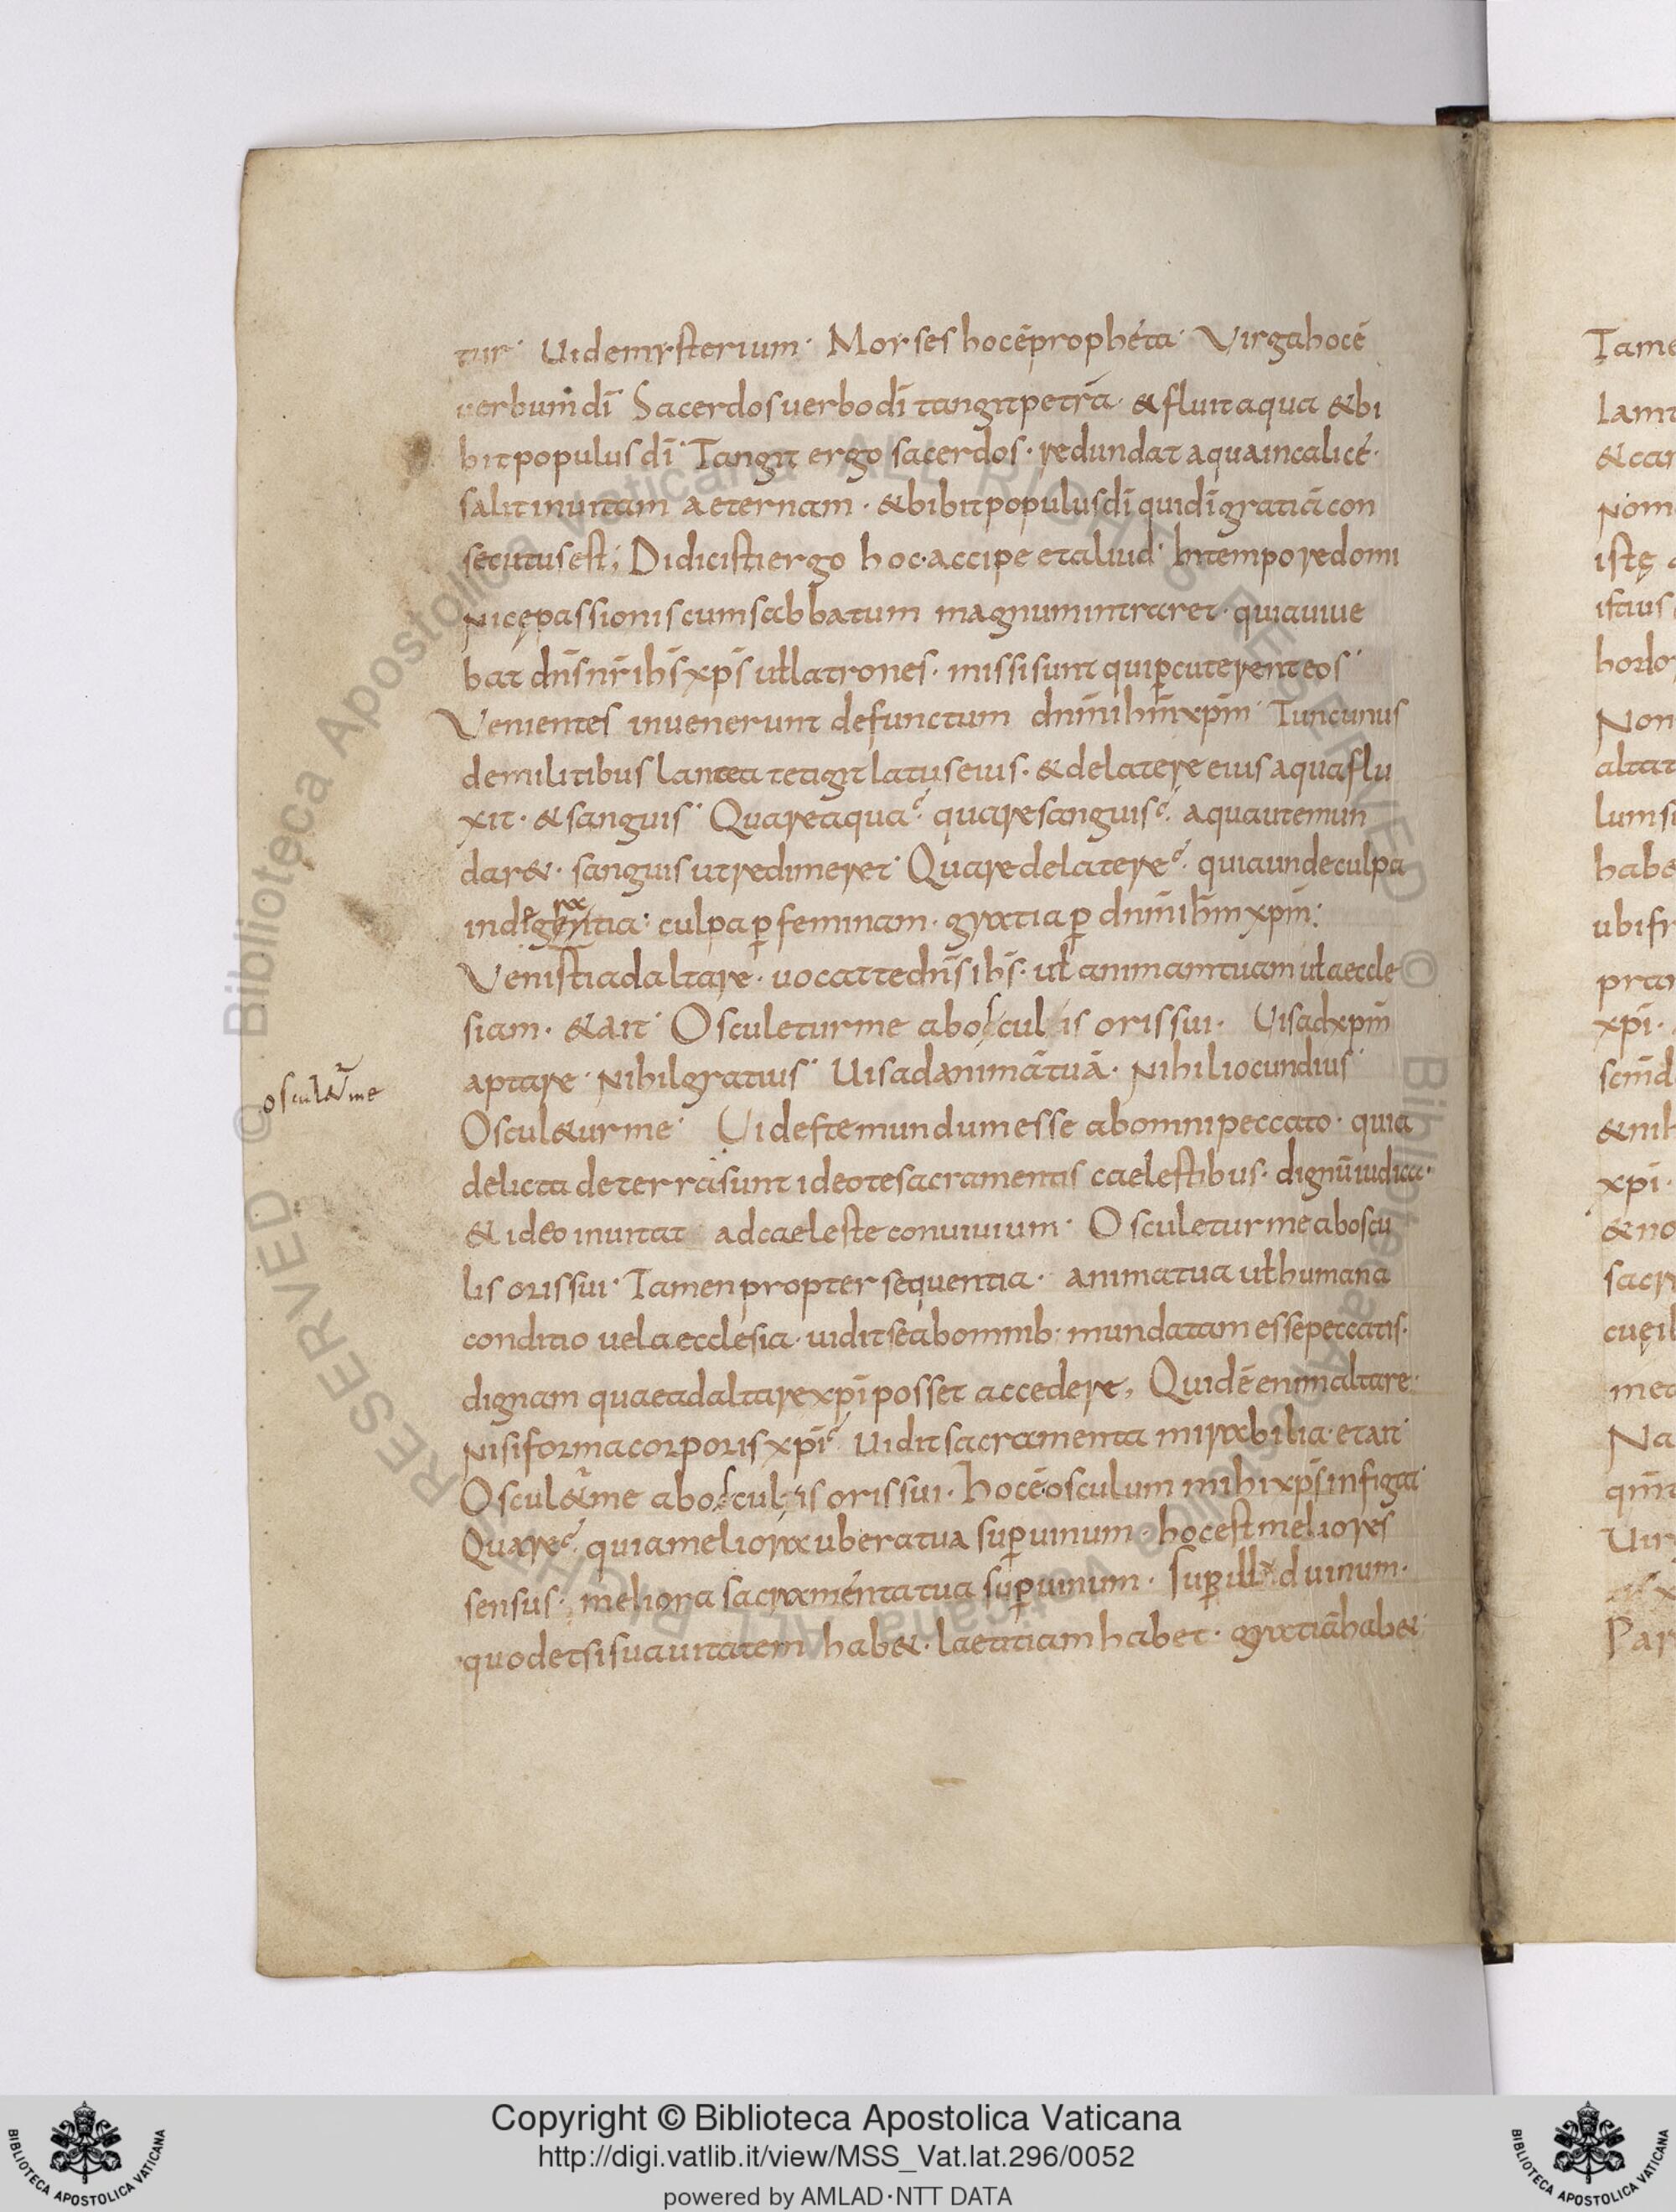 tur· Uide mysterium· Moyses hoc ē propheta· Virga hoc ē
uerbum dī Sacerdos uerbo dī tangit petrā· & fluit aqua & bi
bit populus dī· Tangit ergo sacerdos· redundat aqua in calicē·
salit in uitam aeternam· & bibit populus dī qui dī gratiā con
secutus est; Didicisti ergo hoc· accipe et aliud· In tempore domi
nicę passionis cum sabbatum magnum intraret· quia uiue
bat dn̄s nr̄ ihs̄ xps̄ uƚ latrones· missi sunt qui ꝑcuterent eos·
Venientes inuenerunt defunctum dnm̄ ihm̄ xpm̄· Tunc unus
de militibus lancea tetigit latus eius· & de latere eius aqua flu
xit· & sanguis· Quare aqua? quare sanguis? aqua ut emun
dar&· sanguis ut redimeret· Quare de latere? quia unde culpa
inde gratia· culpa ꝑ feminam· gratia ꝑ dnm̄ ihm̄ xpm̄·
Venisti ad altare· uocat te dn̄s ihs̄· uƚ animam tuam uƚ aecle
siam· & ait· Osculetur me ab osculis oris sui· Uis ad xpm̄
aptare· Nihil gratius· Uis ad animā tuā· Nihil iocundius·
oscul&ur me
Oscul&ur me· Uidet te mundum esse ab omni peccato· quia
delicta detersa sunt ideo te sacramentis caelestibus· dignū iudica·
& ideo inuitat ad caeleste conuiuium· Osculetur me ab oscu
lis oris sui· Tamen propter sequentia· anima tua uƚ humana
conditio uel aecclesia· uidit se ab omnib· mundatam esse peccatis·
dignam quae ad altare xpī posset accedere, Quid ē enim altare·
Nisi forma corporis xpī? Uidit sacramenta mirabilia· et ait·
Oscul&ur me ab osculis oris sui· hoc ē osculum mihi xps̄ infigat·
Quare? quia meliora ubera tua suꝑ uinum· hoc est meliores
sensus· meliora sacramenta tua suꝑ uinum· Suꝑ illud uinum·
quod etsi suauitatem hab&· laetitiam habet· gratiā hab&·
Copyright © Biblioteca Apostolica Vaticana
http://digi.vatlib.it/view/MSS_Vat.lat.296/0052
powered by AMLAD·NTT DATA